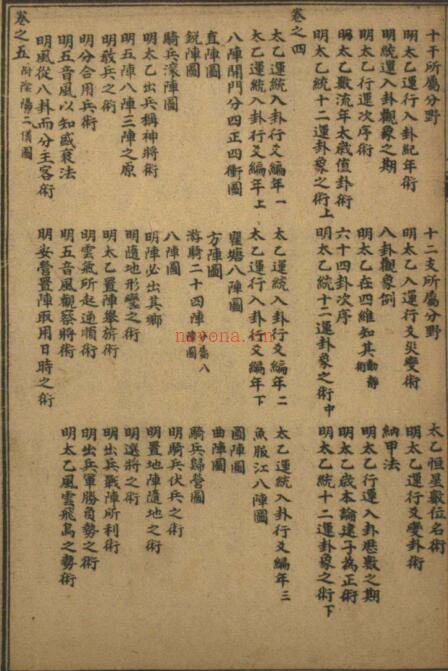 十干所屬分野 十二支所屬分野 太乙恒星數位名術
明太乙運行入卦紀年術 明太乙入運行爻災變術 明太乙運行爻變卦術
明統運入卦觀象之期 八卦觀象例 納甲法
明太乙行運次序術 明太乙在四維知其動靜術 明太乙行運入卦歷數之期
明太乙數流年太歲值卦術 六十四卦次序 明太乙歲本論建子為正術
明太乙統十二運卦象之術上 明太乙統十二運卦象之術中 明太乙統十二運卦象之術下
卷之四
太乙運統入卦行爻編年一 太乙運統入卦行爻編年二 太乙運統入卦行爻編年三
太乙運行入卦行爻編年上 太乙運行入卦行爻編年下 魚服江八陣圖
八陣開門分四正四衝圖 瞿塘八陣圖 圓陣圖
直陣圖 方陣圖 曲陣圖
銳陣圖 游騎二十四陣 騎兵歸營圖
騎兵滾陣圖 八陣圖 明騎兵伏兵之術
明太乙出兵稱神將術 明陣必出其鄉 明置地陣隨地之術
明五陣八陣三陣之原 明隨地形變之術 明選將之術
明教兵之術 明太乙置陣舉旌術 明出兵戰陣所利術
明分合用兵術 明雲氣所起逆順術 明出兵軍勝負勢之術
明五音風以知盛衰法 明五音風觀察將術 明太乙風雲飛鳥之勢術
明風從八卦而分主客術 明安營置陣取用日時之術
卷之五 附陰陽二儀圖
nayona.cn